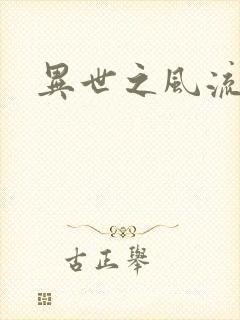 異世之風流
古正舉